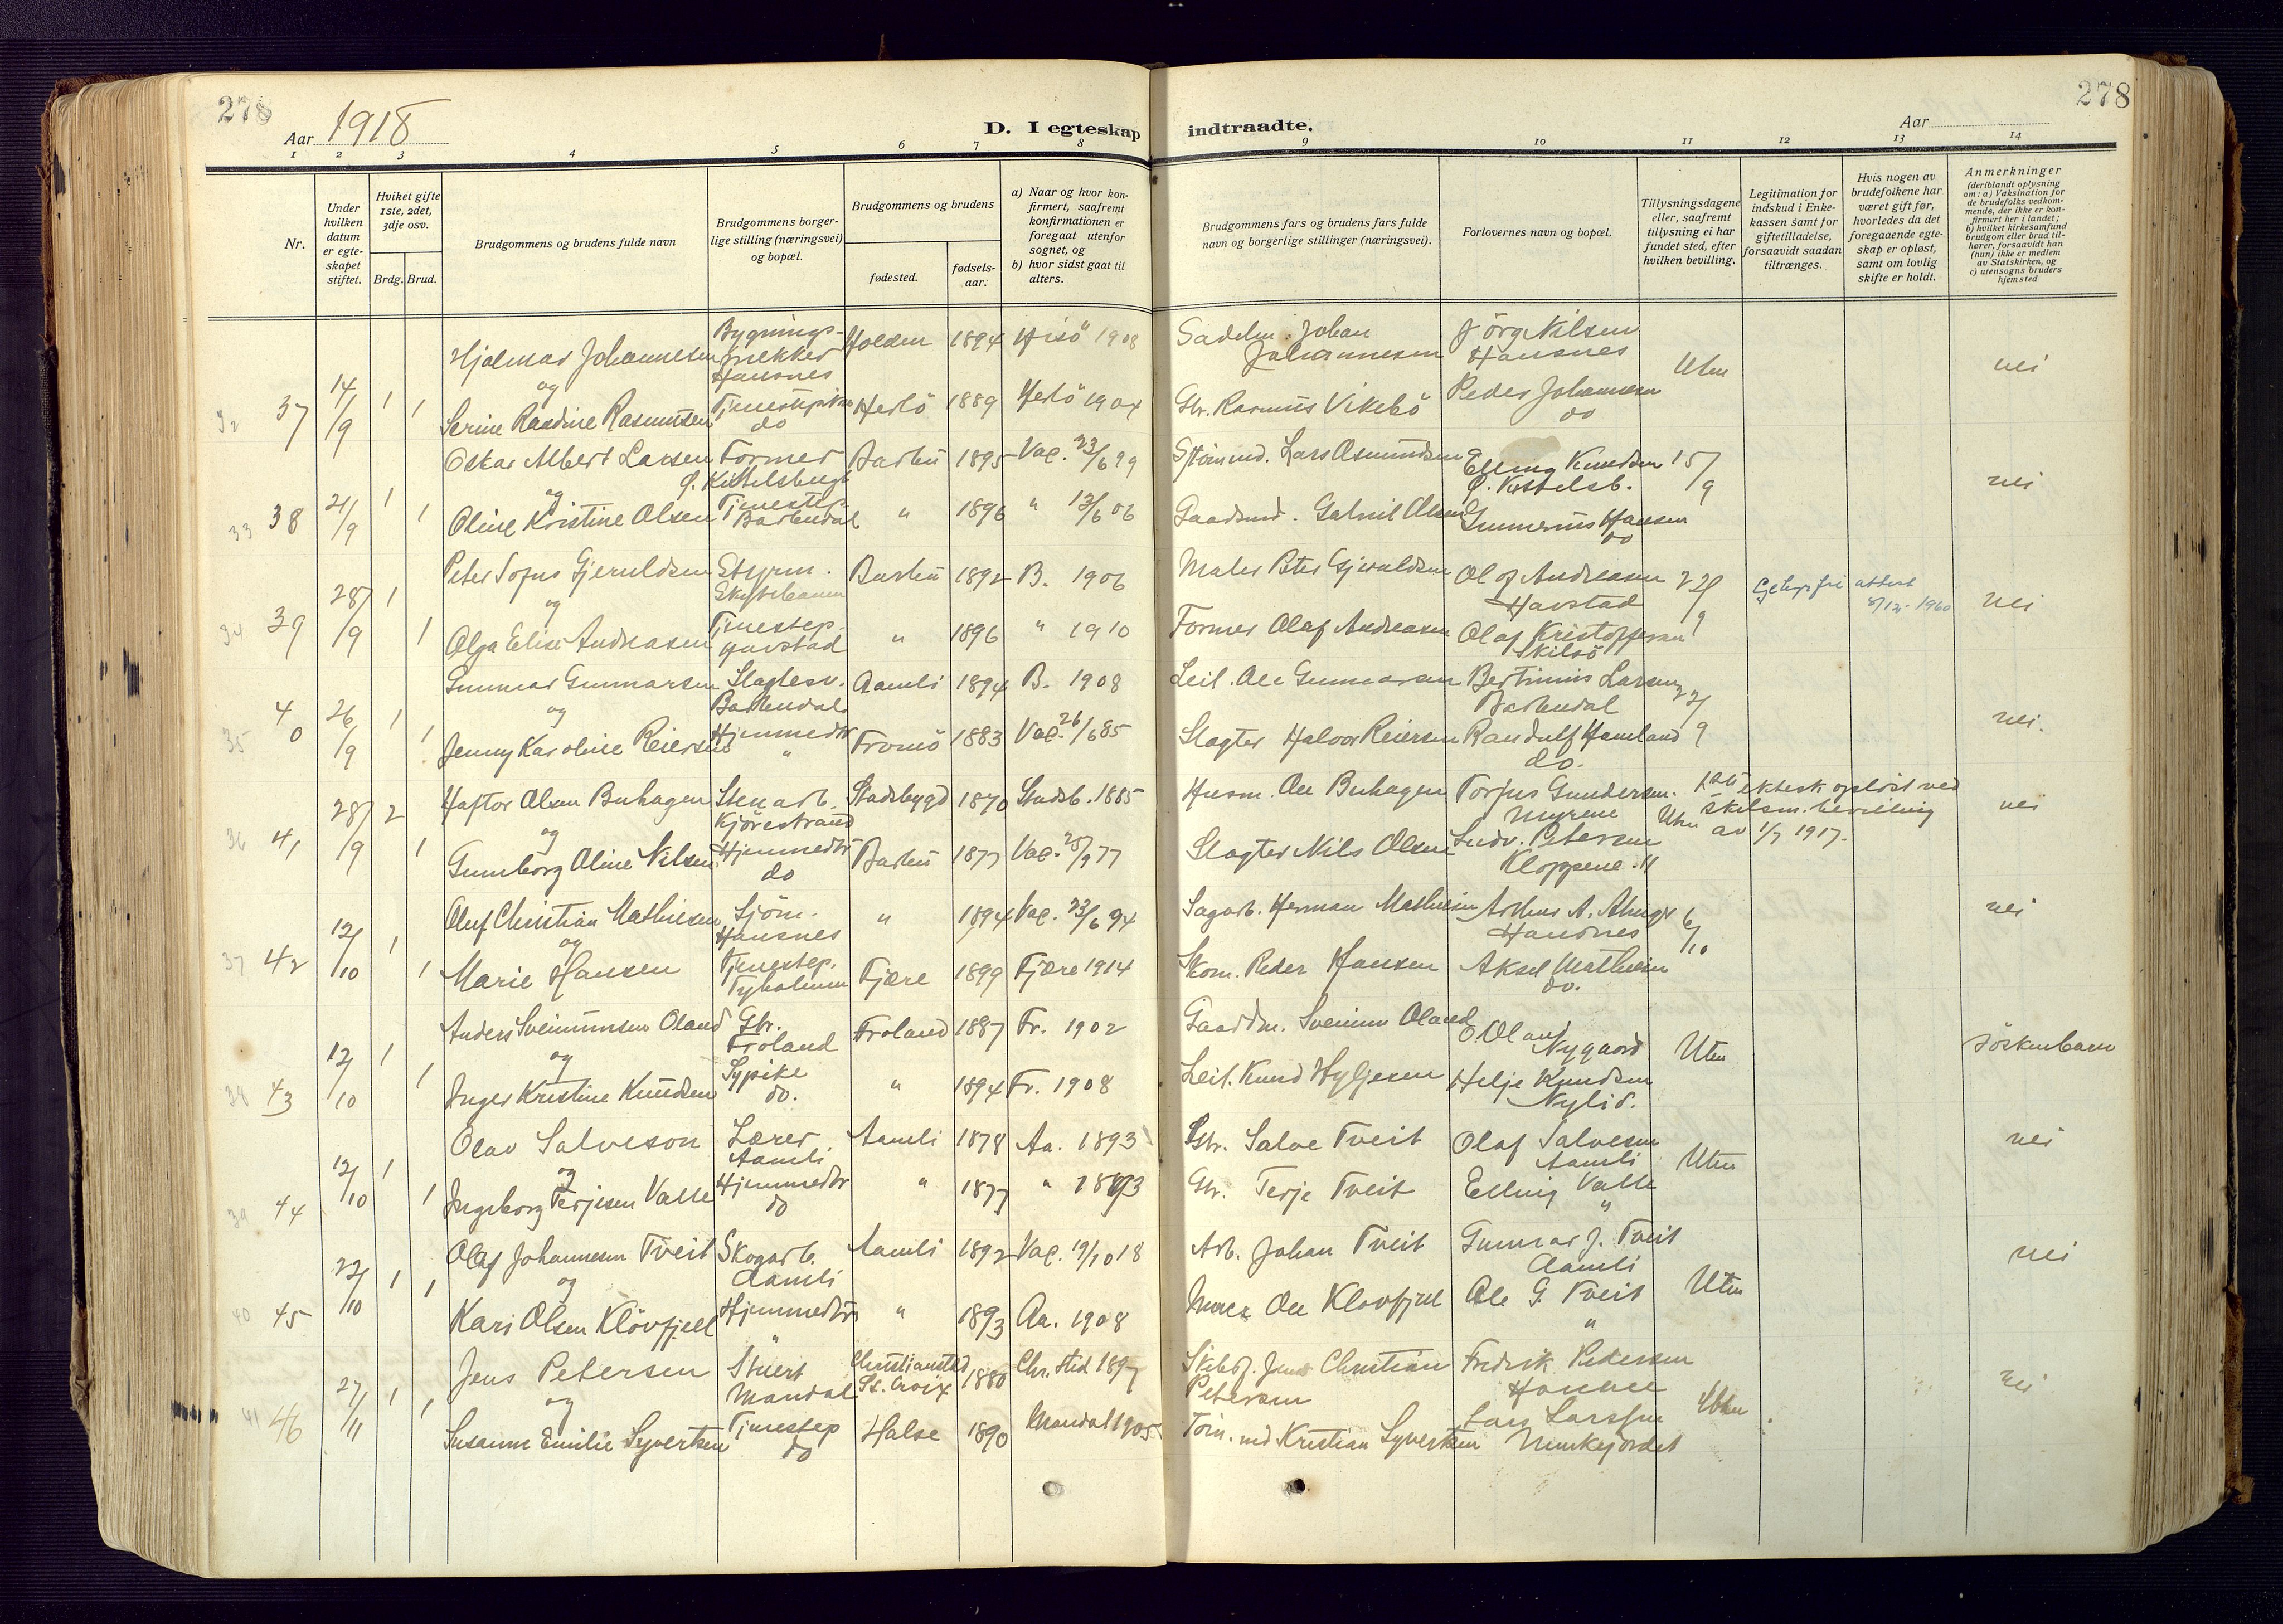 278
278
Aar 1918
D. I egteskap indtraadte.
Aar
1 2 3 4 5 6 7 8 9 10 11 12 13 14
Nr.
Under hvilken datum er egteskapet stiftet.
Hviket gifte 1ste, 2det, 3dje osv.
Brdg. Brud.
Brudgommens og brudens fulde navn
Brudgommens borgerlige stilling (næringsvei) og bopæl.
Brudgommens og brudens
fødested.
fødselsaar.
a) Naar og hvor konfirmert, saafremt konfirmationen er foregaat utenfor sognet, og
b) hvor sidst gaat til alters.
Brudgommens fars og brudens fars fulde navn og borgerlige stillinger (næringsvei).
Forlovernes navn og bopæl.
Tillysningsdagene eller, saafremt tillysning ei har fundet sted, efter hvilken bevilling.
Legitimation for indskud i Enkekassen samt for giftetilladelse, forsaavidt saadan tiltrænges.
Hvis nogen av brudefolkene har været gift før, hvorledes da det foregaaende egteskap er opløst, samt om lovlig skifte er holdt.
Anmerkninger
(deriblandt oplysning om: a) Vaksination for de brudefolks vedkommende, der ikke er konfirmert her i landet; b) hvilket kirkesamfund brudgom eller brud tilhører, forsaavidt han (hun) ikke er medlem av Statskirken, og c) utensogns bruders hjemsted
32 37 14/9 1 1
Hjalmar Johannesen Bygnings- Hansnes Holden 1894 Hisö 1908 Sadelm. Johan Johannesen Jörg. Nilsen Hansnes Uten nei
og
Serine Raadine Rasmussen do Herlö 1889 Herlö 1904 Gbr. Rasmus Vikebö Peder Johannesen do
33 38 21/9 1 1
Oskar Albert Larsen Former Ø. Kittelsbugt Barbu 1895 Vac. 23/6 99 Lars Osmundsen Elling Knudsen Ø. Kittelsb. 15/9 nei
og
Oline Kristine Olsen Tjenestep. Barbudal " 1896 " 13/6 06 Gaardmd. Gabriel Olsen Gunnerius Hansen do
34 39 28/9 1 1
Peter Sofus Gjeruldsen Styrm. Skytebanen Barbu 1892 B. 1906 Maler Peter Gjeruldsen Olaf Andreasen Havstad 22/9 attest 5/12-1960 nei
og
Olga Elise Andreasen Tjenestep. Havstad " 1896 " 1910 Former Olaf Andreasen Olaf Kristoffersen Skilsö
35 40 26/9 1 1
Gunnar Gunnarsen Slagtesv. Barbudal Aamli 1894 B. 1908 Leil. Ole Gunnarsen Bertinius Larsen Barbudal 22/9 nei.
og
Jenny Karoline Reiersen Hjemmedtr " Tromö 1883 Vac. 26/6 85 Slagter Halvor Reiersen Randulf Hamland do.
36 41 28/9 2 1
Haftor Olsen Buhagen Stenarb. Kjörestrand Stadsbygd 1870 Stadsb. 1885 Husm. Ole Buhagen Torjus Gundersen Myrene Uten 1ste ektesk. oplöst ved skilsm. bevilling av 1/7 1917. nei
og
Gunnborg Oline Nilsen Hjemmedtr do Barbu 1877 Vac. 25/9 77 Slagter Nils Olsen Ludv. Petersen Kloppene 11
37 42 12/10 1 1
Oluf Christian Mathiesen Sjöm. Hansnes " 1894 Vac. 23/6 94 Sagarb. Herman Mathiesen Arthur A. Hansnes 6/10 nei
og
Marie Hansen Tjenestep. Tyholmen Fjære 1899 Fjære 1914 Skom. Peder Hansen Aksel Mathiesen do.
38 43 12/10 1 1
Anders Sveinunsen Oland Gbr. Froland Froland 1887 Fr. 1902 Gaardm. Sveinun Oland O. Oland Nygaard Uten Söskenbarn
og
Inger Kristine Knudsen Sypike do. " 1894 Fr. 1908 Leil. Knud Hyljesen Helje Knudsen Nylid.
39 44 12/10 1 1
Olav Salveson Lærer Aamli Aamli 1878 Aa. 1893 Gbr. Salve Tveit Olaf Salvesen Aamli Uten nei
og
Ingeborg Terjesen Valle Hjemmedtr do " 1877 " 1893 Gbr. Terje Tveit Elling Valle "
40 45 22/10 1 1
Olaf Johannesen Tveit Skogarb. Aamli Aamli 1892 Vac. 19/10 18 Arb. Johan Tveit Gunnar J. Tveit Aamli Uten nei
og
Kari Olsen Klövfjell Hjemmedtr " " 1893 Aa. 1908 Ole Klovfjell Ole G. Tveit "
41 46 27/11 1 1
Jens Petersen Stuert Mandal Christiansted St. Croix 1880 Chr.sted 1897 Skibsf. Jens Christian Petersen Fredrik Pedersen Uten nei
og
Susanne Emilie Syvertsen Tjenestep do Halse 1890 Mandal 1905 Kristian Syvertsen Lars Larssen Munkejordet